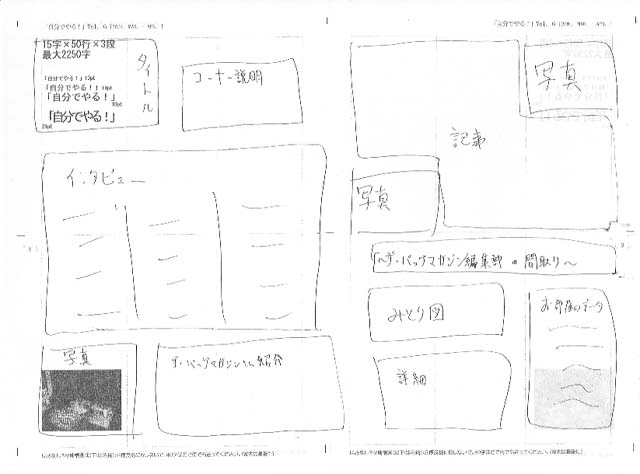 「自分でやる！」Vol. 6
15字×50行×3段
最大2250字
「自分でやる！」
「自分でやる！」
「自分でやる！」
「自分でやる！」
タイトル
コーナー説明
インタビュー
写真
ザ・バッグマガジン
紹介
「自分でやる！」Vol. 6
写真
記事
写真
ザ・バッグマガジン編集部の間取り～
みとり図
お部屋のデータ
詳細